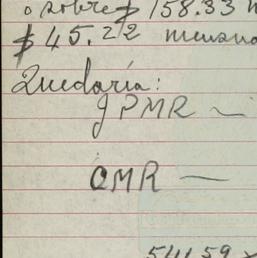 o sobre $ 158.33 m
$ 45.22 mensua
Quedaría:
JPMR —
CMR —
541.59